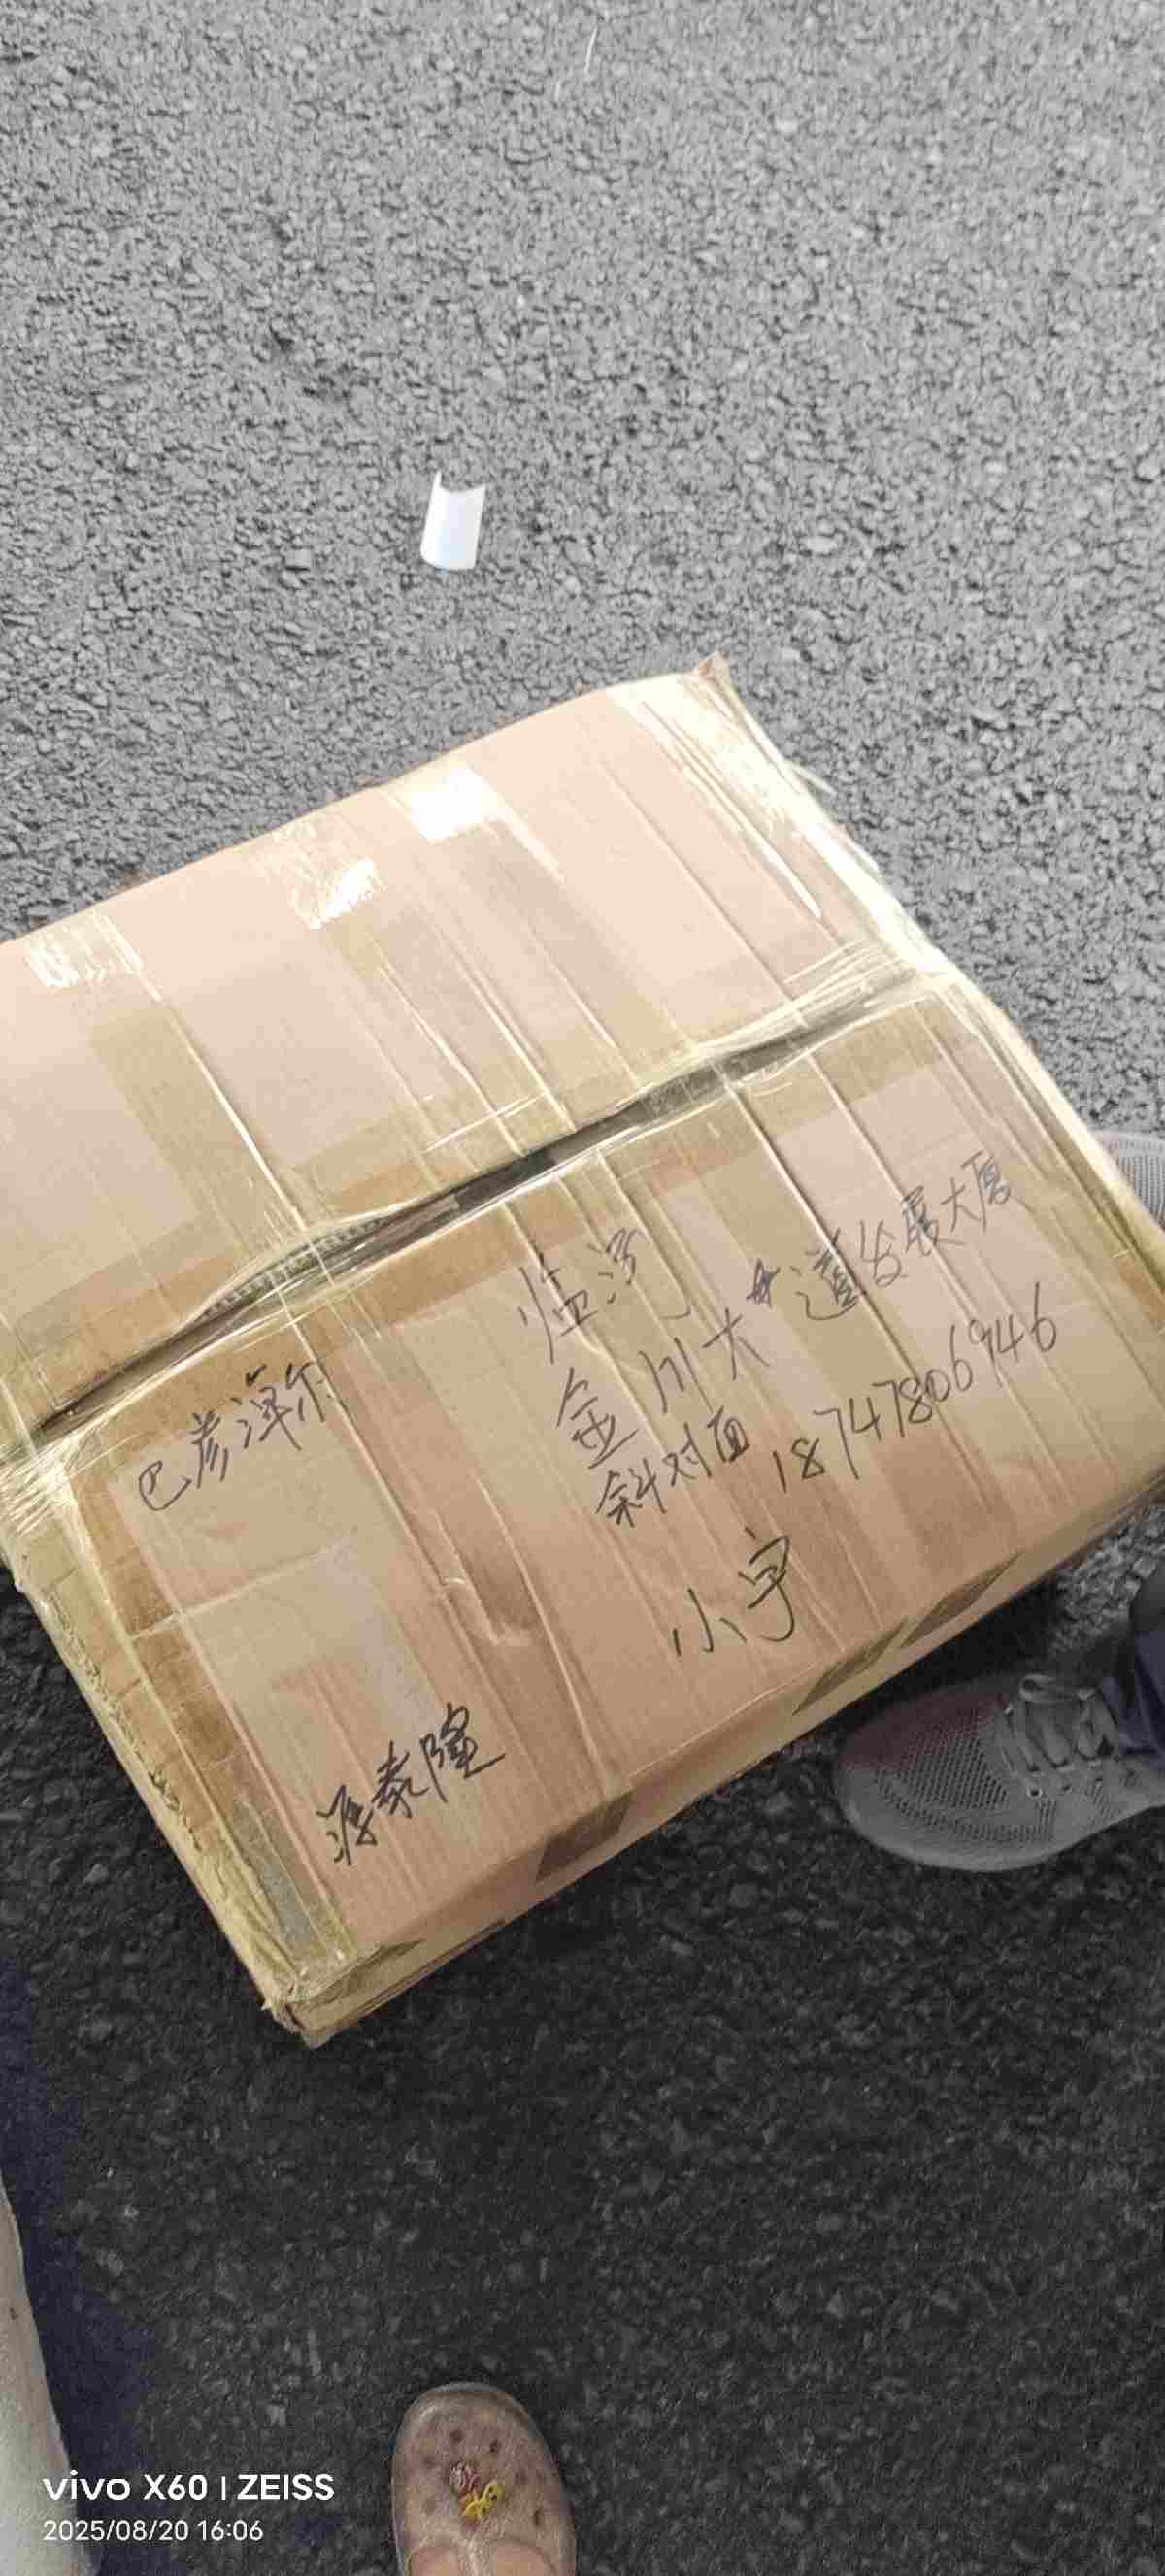 临河
金川大道发展大厦
斜对面 18747806946
小宇
巴彦淖尔
源泰隆
vivo X60 | ZEISS
2025/08/20 16:06